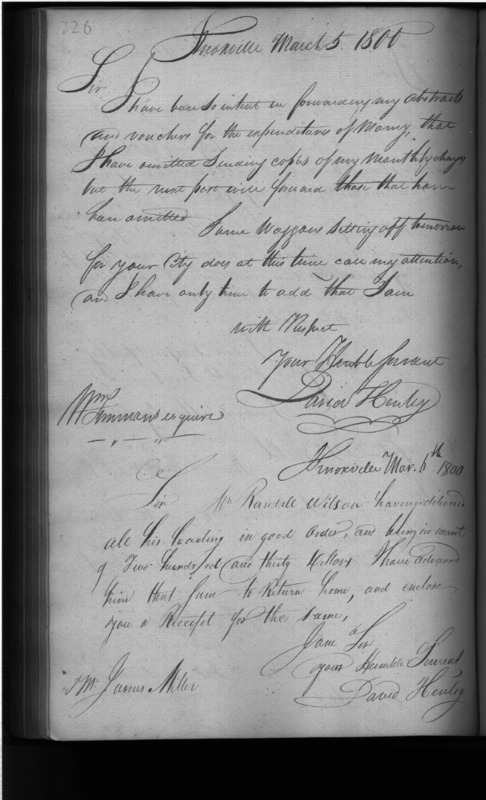 226
Knoxville March 5 1800
Sir
I have been so intent in forwarding my abstracts
and vouchers for the expenditures of Money, that
I have omitted sending copies of my Monthly charges
but the next post will forward those that have
been omitted Some Waggons setting off tomorrow
for your City does at this time call my attention,
and I have only time to add that I am
with Respect
Your Humble Servant
David Henley
Wm Simmons esquire
Knoxville Mar. 6th 1800
Sir Mr Randall Wilson having delivered
all his loading in good order, and being in want
of Two hundred and thirty dollars I have advanced
him that sum to Return home, and enclose
you a Receipt for the same,
I am Sir
your Humble Servant
David Henley
Mr James Miller